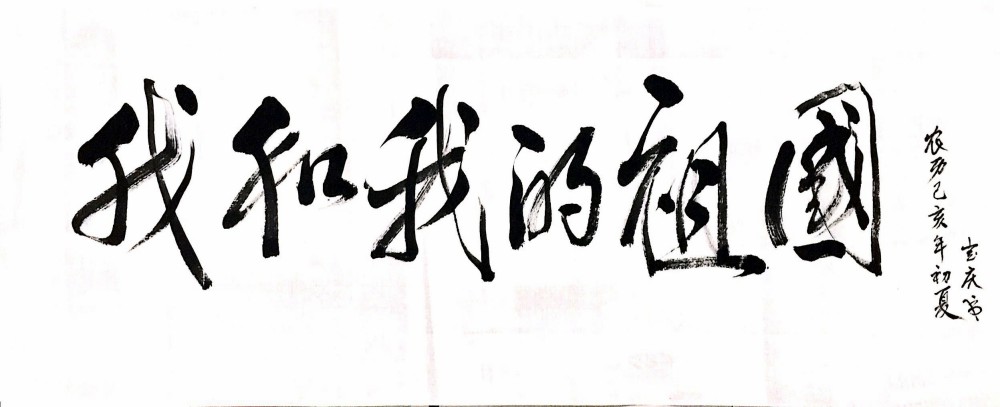 我和我的祖國
农历己亥年初夏
宝庆书